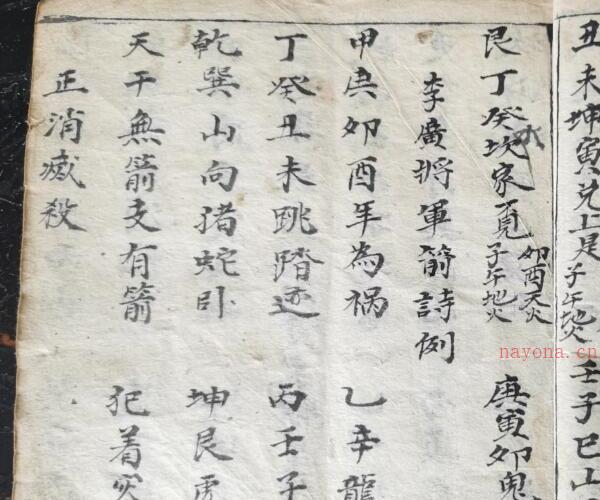 丑未坤寅兑上是 子午地火 壬子巳山
艮丁癸坎家覓 卯酉天火 子午地火 庚寅卯
水
李廣將軍箭詩例
甲庚卯酉年為禍 乙辛龍
丁癸丑未跳踏迹 丙壬子
乾巽山向猪蛇卧 坤艮虎
天干無箭支有箭 犯着
正消滅殺
nayona.cn